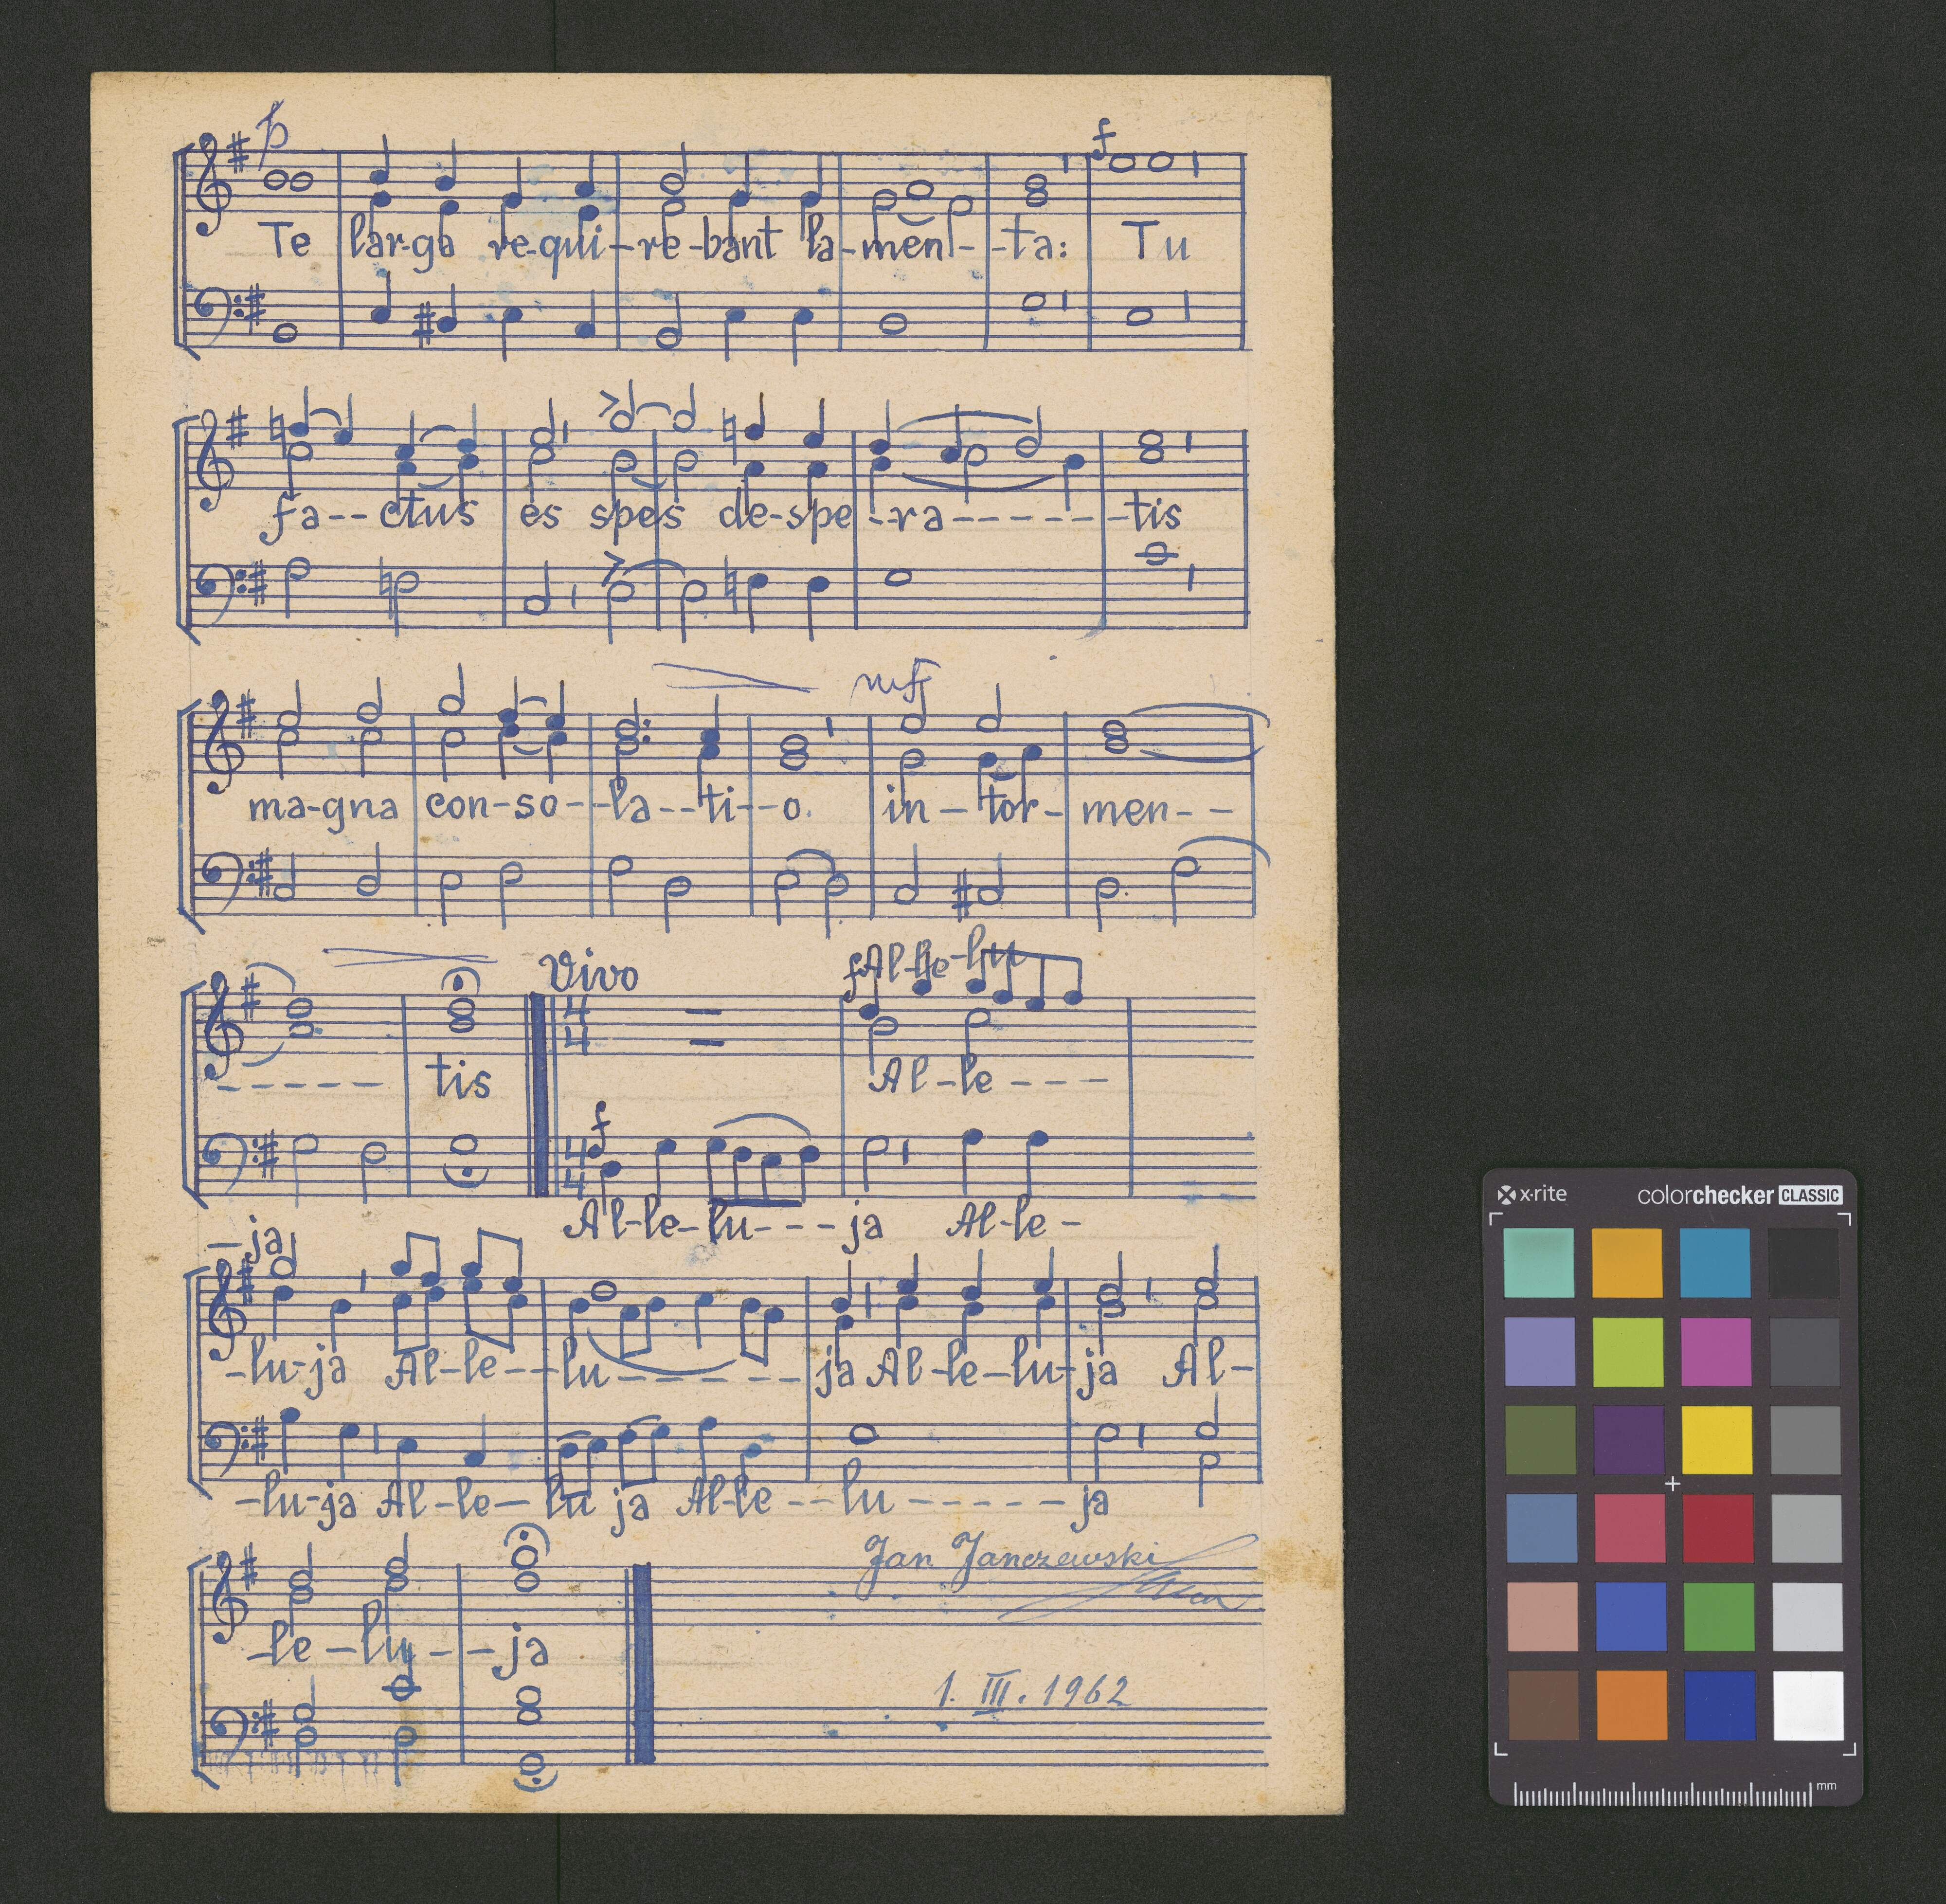 p f
Te lar-ga re-qui-re-bant la-men--ta: Tu
fa--ctus es spes de-spe--ra-------tis
mf
ma-gna con-so--la--ti--o. in-tor-men--
Vivo fAl-le-lu
----- tis
4 4
Al-le----
f
4 4
Al-le-lu---ja Al-le-
-ja
-lu-ja Al-le--lu------ja Al-le-lu-ja Al-
-lu-ja Al-le-lu ja Al-le--lu------ja
Jan Janczewski
-le-lu--ja
1. III. 1962
x·rite colorchecker CLASSIC
mm